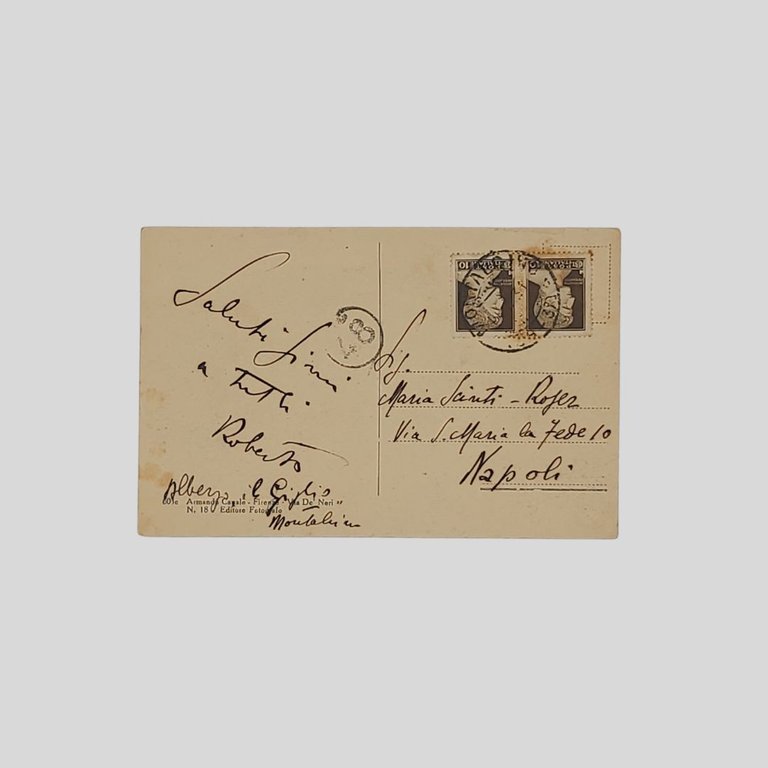 Saluti
a tutti
Roberto
Albergo il Giglio
Montalcino
601e Armando Casale - Firenze - Via De' Neri
N. 18 Editore Fotografo
Sig.
Maria Scinti - Roger
Via S. Maria la Fede 10
Napoli
10